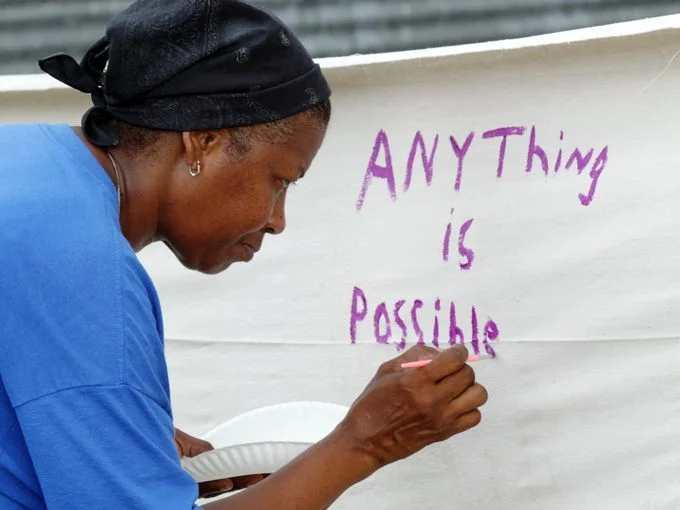 ANYThing
is
Possible